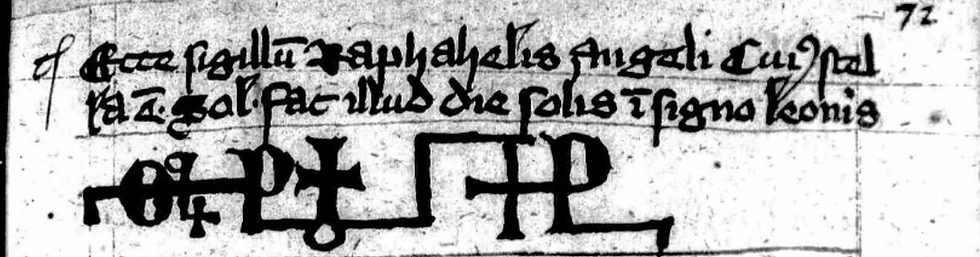 72
Ecce sigillū Raphahelis Angeli Cuiꝰ stel
la ē. Sol. fac illud die solis ī signo leonis